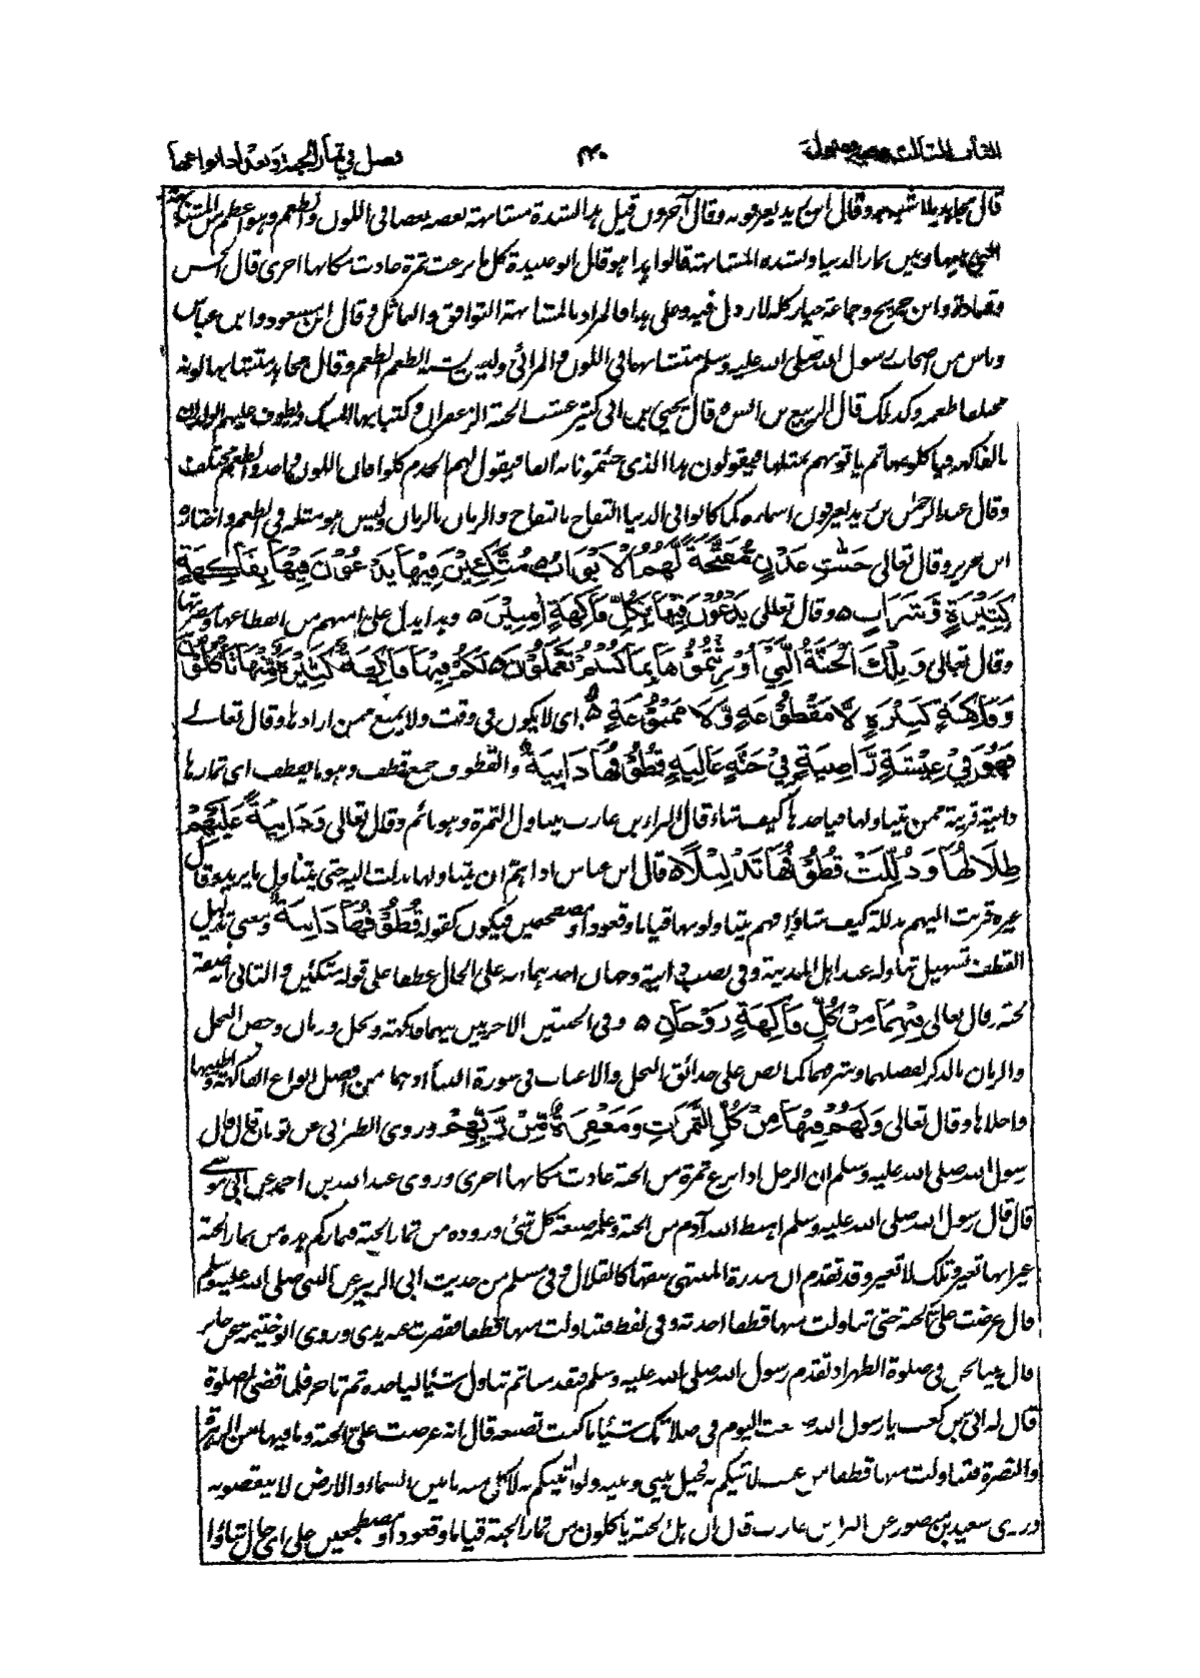 فصل في ثمار الجنة وتعداد أنواعها
۴۳۰
قال مجاهد وقال ابن زيد يعرفونه وقال آخرون قيل هذا لشدة مشابهة بعضه بعضا في اللون والطعم وهو أعظم من
وبين ثمار الدنيا ولشدة المشابهة قالوا هذا هو وقال أبو عبيدة كل ما نزعت ثمرة عادت مكانها أخرى قال الحسن
وقتادة وابن جريج وجماعة خيار كله لا رذل فيه وعلى هذا فالمراد بالمشابهة التوافق والتماثل وقال ابن مسعود وابن عباس
وناس من أصحاب رسول الله صلى الله عليه وسلم متشابها في اللون والمرائى وليس يشبه الطعم الطعم وقال مجاهد متشابها لونه
مختلفا طعمه وكذلك قال الربيع بن أنس وقال يحيى بن أبي كثير عشب الجنة الزعفران وكثبانها المسك ويطوف عليهم الولدان
بالفاكهة فيأكلونها ثم يأتونهم بمثلها فيقولون هذا الذي جئتمونا به آنفا فيقول لهم الخدم كلوا فان اللون واحد والطعم مختلف
وقال عبد الرحمن بن زيد يعرفون أسماءه كما كانوا في الدنيا التفاح بالتفاح والرمان بالرمان وليس هو مثله في الطعم واختاره
ابن جرير وقال تعالى جَنّٰتِ عَدْنٍ مُفَتَّحَةً لَهُمُ الْأَبْوَابُ مُتَّكِئِيْنَ فِيْهَا يَدْعُوْنَ فِيْهَا بِفَاكِهَةٍ
كَثِيْرَةٍ وَشَرَابٍ وقال تعالى يَدْعُوْنَ فِيْهَا بِكُلِّ فَاكِهَةٍ اٰمِنِيْنَ وهذا يدل على أمنهم من انقطاعها ومضرتها
وقال تعالى وَتِلْكَ الْجَنَّةُ الَّتِيْ أُوْرِثْتُمُوْهَا بِمَا كُنْتُمْ تَعْمَلُوْنَ لَكُمْ فِيْهَا فَاكِهَةٌ كَثِيْرَةٌ مِّنْهَا تَأْكُلُوْنَ
وَفَاكِهَةٍ كَثِيْرَةٍ لَّا مَقْطُوْعَةٍ وَّلَا مَمْنُوْعَةٍ أي لا يكون في وقت ولا يمنع ممن أرادها وقال تعالى
فَهُوَ فِيْ عِيْشَةٍ رَّاضِيَةٍ فِيْ جَنَّةٍ عَالِيَةٍ قُطُوْفُهَا دَانِيَةٌ والقطوف جمع قطف وهو ما يقطف أي ثمارها
دانية قريبة ممن يتناولها فيأخذها كيف شاء قال البراء بن عازب يتناول الثمرة وهو نائم وقال تعالى وَدَانِيَةً عَلَيْهِمْ
ظِلَالُهَا وَذُلِّلَتْ قُطُوْفُهَا تَذْلِيْلًا قال ابن عباس إذا هم أن يتناولها تدلت اليه حتى يتناول ما يريد وقال
غيره قربت اليهم مذللة كيف شاؤا فهم يتناولونها قياما وقعودا ومضطجعين فيكون كقوله قُطُوْفُهَا دَانِيَةٌ ومعنى تذليل
القطف تسهيل تناوله عند أهل المدينة وفي نصب دانية وجهان أحدهما انه على الحال عطفا على قوله متكئين والثاني أنه صفة
لجنة وقال تعالى فِيْهِمَا مِنْ كُلِّ فَاكِهَةٍ زَوْجَانِ وفي الجنتين الأخريين فيهما فاكهة ونخل ورمان وخص النخل
والرمان بالذكر لفضلهما وشرفهما كما نص على حدائق النخل والأعناب في سورة النبأ إذ هما من أفضل أنواع الفاكهة وأطيبها
وأحلاها وقال تعالى وَلَهُمْ فِيْهَا مِنْ كُلِّ الثَّمَرَاتِ وَمَغْفِرَةٌ مِّنْ رَّبِّهِمْ وروى الطبراني عن ثوبان قال قال
رسول الله صلى الله عليه وسلم ان الرجل اذا نزع ثمرة من الجنة عادت مكانها أخرى وروى عبد الله بن احمد عن أبي موسى
قال قال رسول الله صلى الله عليه وسلم اهبط الله آدم من الجنة وعلمه صنعة كل شيء وزوده من ثمار الجنة فثماركم هذه من ثمار الجنة
غير انها تغير وتلك لا تغير وقد تقدم ان سدرة المنتهى نبقها كالقلال وفي مسلم من حديث أبي الزبير عن النبي صلى الله عليه وسلم
قال عرضت علي الجنة حتى تناولت منها قطفا أخذته وفي لفظ فتناولت منها قطفا فقصرت عنه يدي وروى أبو خيثمة عن جابر
قال بينا نحن في صلوة الظهر اذ تقدم رسول الله صلى الله عليه وسلم فتقدمنا ثم تناول شيئا ليأخذه ثم تأخر فلما قضى الصلوة
قال له أبي بن كعب يا رسول الله صنعت اليوم في صلاتك شيئا ما كنت تصنعه قال انه عرضت علي الجنة وما فيها من الزهرة
والنضرة فتناولت منها قطفا من عنب لآتيكم به فحيل بيني وبينه ولو أتيتكم به لأكل منه ما بين السماء والأرض لا ينقصونه
وروى سعيد بن منصور عن البراء بن عازب قال ان أهل الجنة يأكلون من ثمار الجنة قياما وقعودا ومضطجعين على أي حال شاؤا